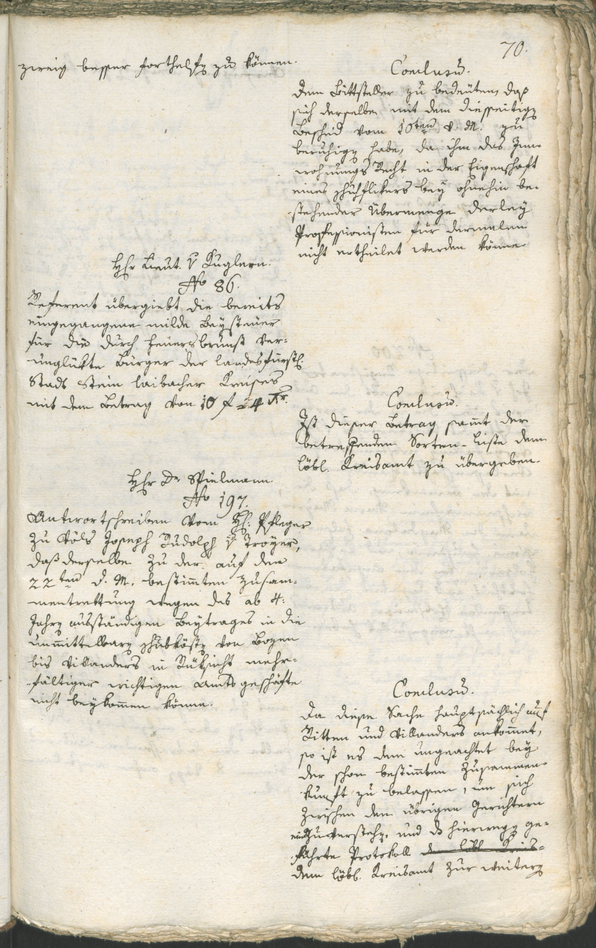 70.
zweig besser forthelfen zu können.
Conclusum.
Dem Bittsteller zu bedeuten, daß
sich derselbe mit dem diesseitigen
Bescheid vom 10ten d. M. zu
beruhigen habe, da ihm das Inn-
wohnungs Recht in der Eigenschaft
eines Schuhflikers bey ohnehin be-
stehender Übermenge derley
Professionisten für dermalen
nicht ertheilet werden könne.
Hhr Lieut. v Kuglern.
No 86.
Referent übergiebt die bereits
eingegangene milde Beysteuer
für die durch Feuersbrunst ver-
unglükte Bürger der landesfürstl.
Stadt Stein laibacher Kreises
mit dem Betrag von 10 f 24 Xr.
Conclusum.
Ist dieser Betrag samt der
betreffenden Sorten-Liste dem
löbl. Kreisamt zu übergeben.
Hhr Dr Spielmann
No 197.
Antwortschreiben vom H. Pfleger
zu Völs Joseph Rudolph v Troyer,
daß derselbe zu der auf den
22ten d. M. bestimmten Zusam-
mentrettung wegen des ab 4.
Jahren ausständigen Beytrages in die
unmittelbare Schubkösten von Bozen
bis Villanders in Rüksicht mehr-
fältiger wichtigen Amtsgeschäfte
nicht beykommen könne.
Conclusum.
Da diese Sache hauptsächlich auf
Ritten und Villanders ankommet,
so ist es dem ungeachtet bey
der schon bestimmten Zusammen-
kunft zu belassen, um sich
zwischen den übrigen Gerichtern
einzuverstehen, und das hierwegen ge-
führte Protokoll
dem löbl. Kreisamt zur weitern